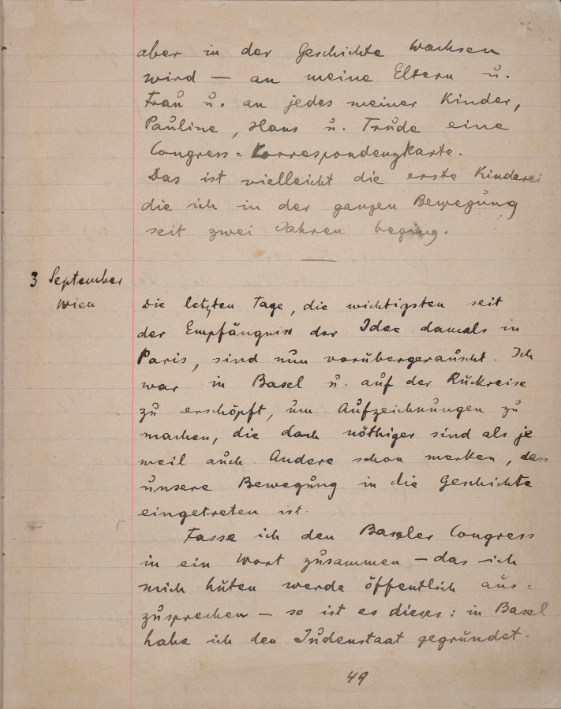 aber in der Geschichte wachsen
wird — an meine Eltern u.
Frau u. an jedes meiner Kinder,
Pauline, Hans u. Trude eine
Congress=Korrespondenzkarte.
Das ist vielleicht die erste Kinderei
die ich in der ganzen Bewegung
seit zwei Jahren beging.
3 September
Wien
Die letzten Tage, die wichtigsten seit
der Empfängniss der Idee damals in
Paris, sind nun vorübergerauscht. Ich
war in Basel u. auf der Rückreise
zu erschöpft, um Aufzeichnungen zu
machen, die doch nöthiger sind als je
weil auch Andere schon merken, dass
unsere Bewegung in die Geschichte
eingetreten ist.
Fasse ich den Baseler Congress
in ein Wort zusammen — das ich
mich hüten werde öffentlich aus=
zusprechen — so ist es dieses: in Basel
habe ich den Judenstaat gegründet.
49